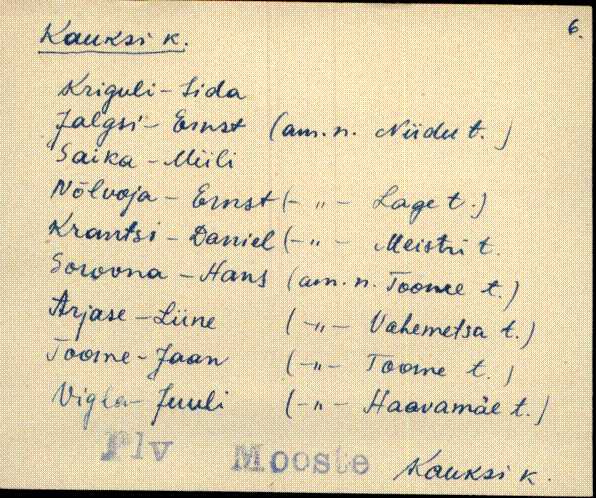 6.
Kauksi k.
Kriguli - Lida
Jalgsi - Ernst (am. n. Niidu t. )
Saika - Miili
Nõlvoja - Ernst (- " - Lage t. )
Krantsi - Daniel (- " - Meistri t.
Soroona - Hans (am. n. Toome t. )
Arjase - Liine (- " - Vahemetsa t. )
Toome - Jaan (- " - Toome t. )
Vigla - Juuli (- " - Haavamäe t. )
Plv Mooste
Kauksi k.